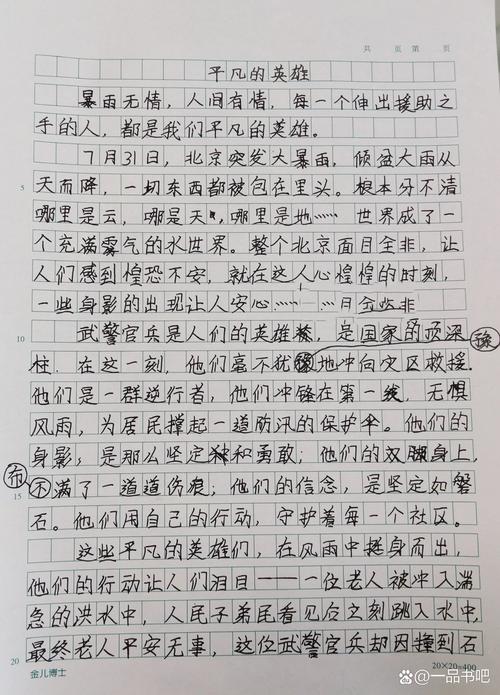 共 页 第 页
平凡的英雄
暴雨无情，人间有情，每一个伸出援助之
手的人，都是我们平凡的英雄。
7月31日，北京突发大暴雨，倾盆大雨从
5 天而降，一切东西都被包在里头。根本分不清
哪里是云，哪是天，哪里是地……世界成了一
个充满雾气的水世界。整个北京面目全非，让
人们感到惶恐不安，就在这人心惶惶的时刻，
一些身影的出现让人安心……
10 武警官兵是人们的英雄，是国家的顶梁
柱．在这一刻，他们毫不犹豫地冲向灾区救援。
他们是一群逆行者，他们冲锋在第一线，无惧
风雨，为居民撑起一道防汛的保护伞。他们的
身影，是那么坚定和勇敢；他们的双脚身上，
15 布满了一道道伤痕；他们的信念，是坚定如磐
石。他们用自己的行动，守护着每一个社区。
这些平凡的英雄们，在风雨中挺身而出，
他们的行动让人们泪目——一位老人被冲入湍
急的洪水中，人民子弟民看见后之刻跳入水中，
20 最终老人平安无事，这位武警官兵却因撞到石
金儿博士 20×20=400
@一品书吧